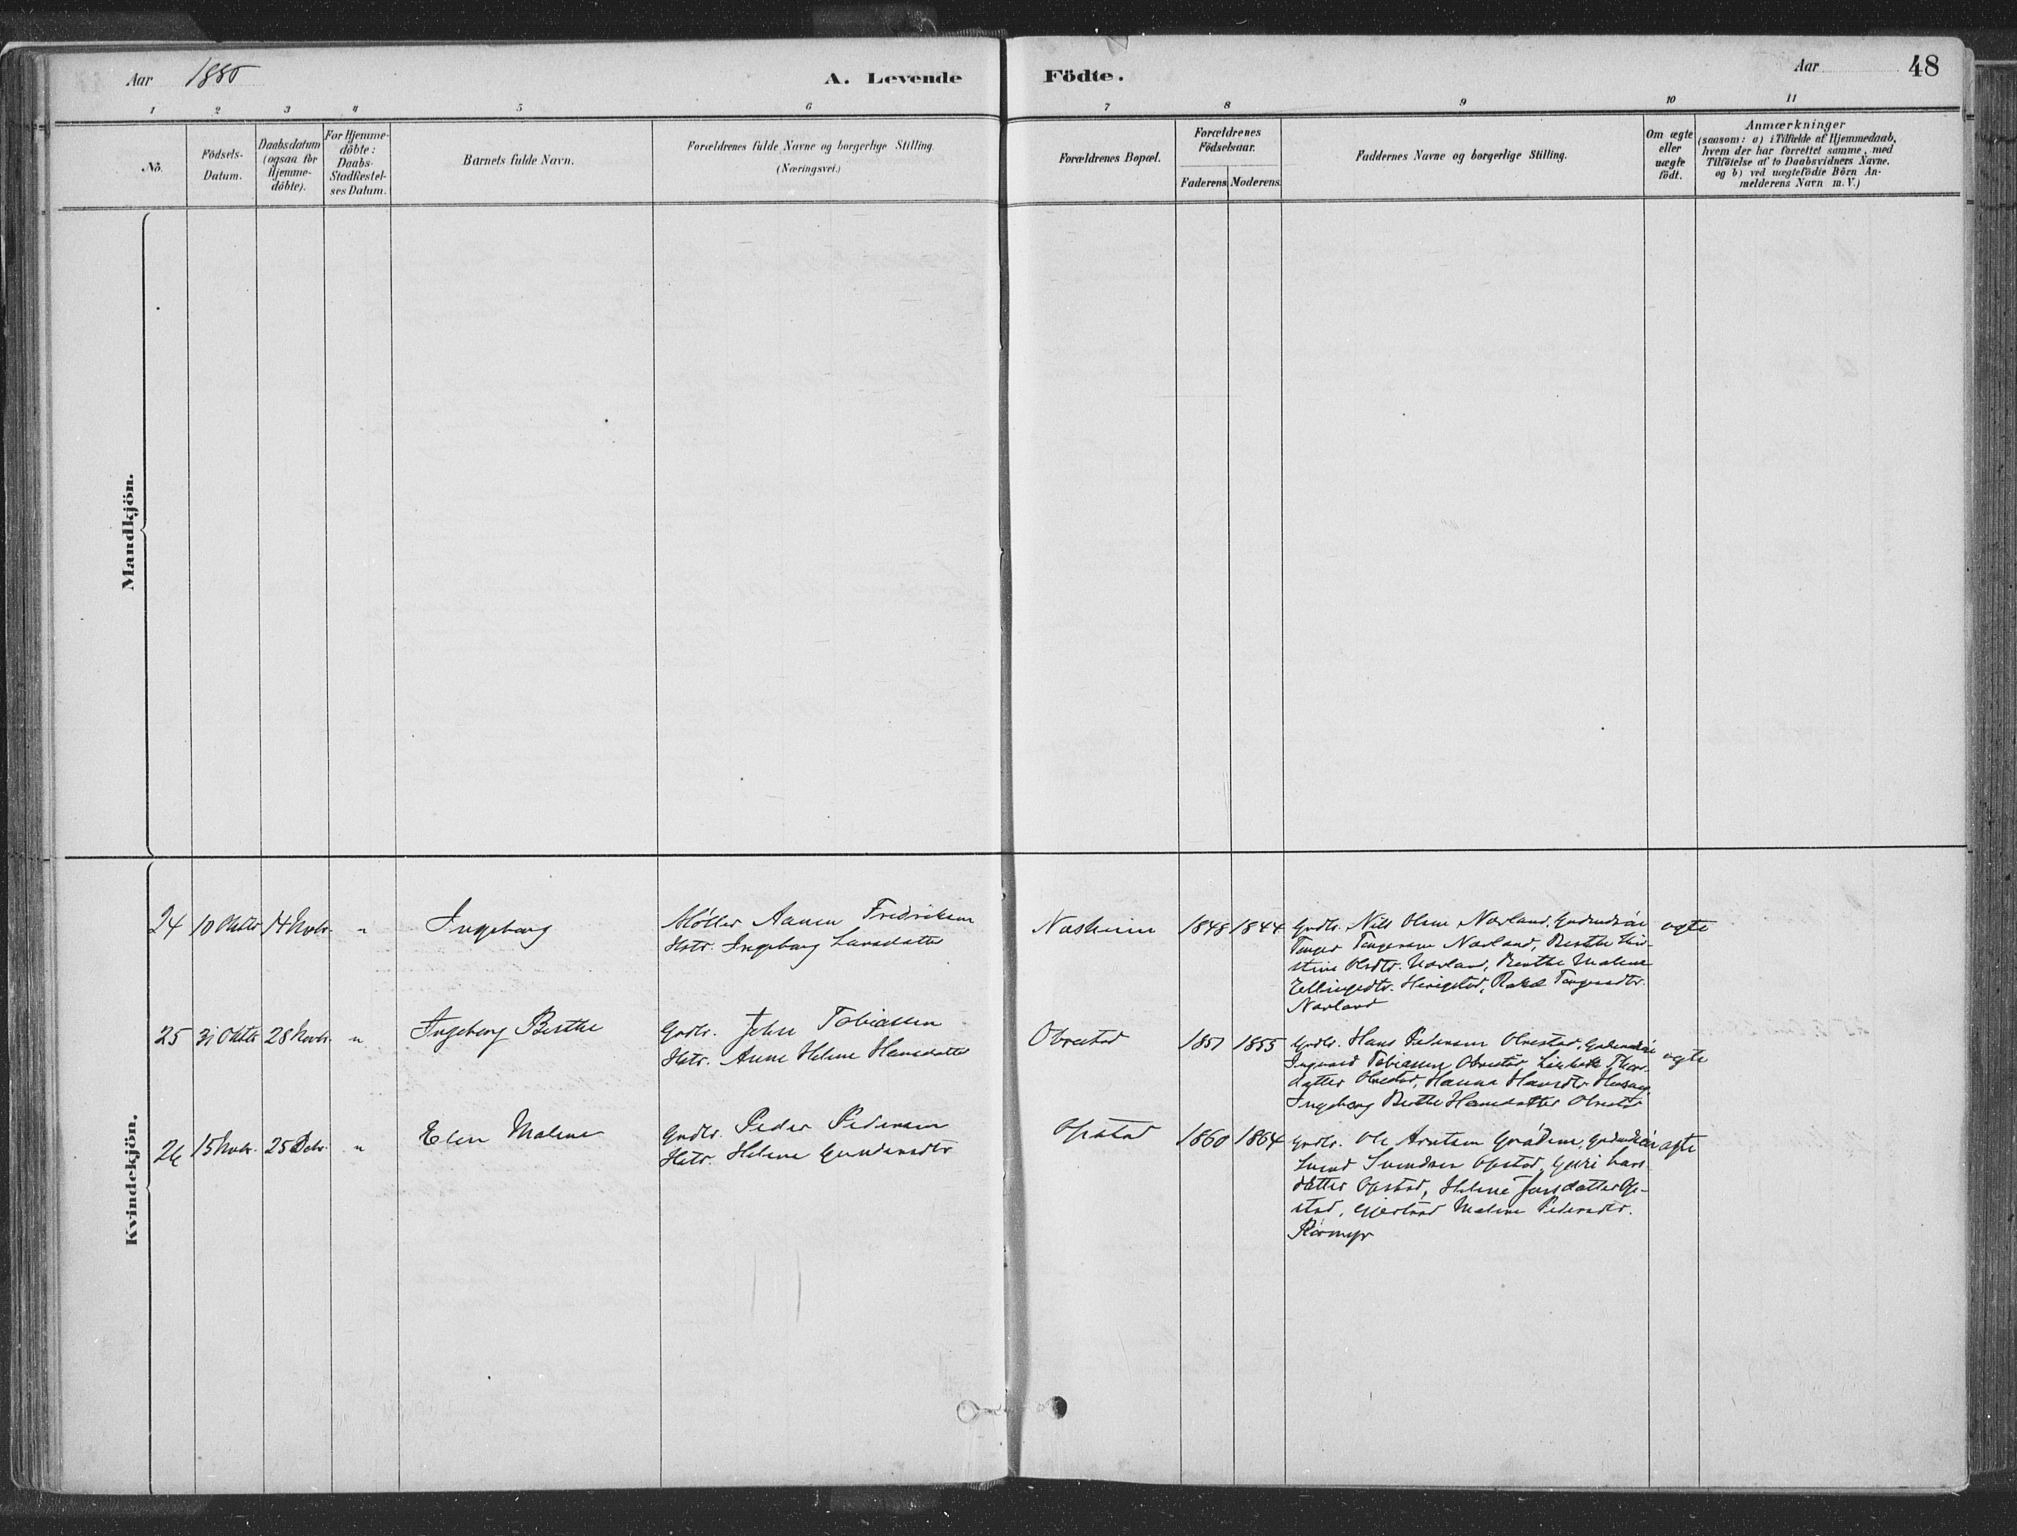 Aar 1886 A. Levende Födte. Aar 48
1 2 3 4 5 6 7 8 9 10 11
No.
Födsels-
Datum.
Daabsdatum
(ogsaa for
Hjemme-
döbte).
For Hjemme-
döbte:
Daabs-
Stadfæstel-
ses Datum.
Barnets fulde Navn.
Forældrenes fulde Navne og borgerlige Stilling.
(Næringsvei.)
Forældrenes Bopæl.
Forældrenes
Födselsaar.
Faderens. Moderens.
Faddernes Navne og borgerlige Stilling.
Om ægte
eller
uægte
födt.
Anmærkninger
(saasom: a) i Tilfælde af Hjemmedaab,
hvem der har forrettet samme, med
Tilföielse af to Daabsvidners Navne.
og b) ved uægtefödte Börn An-
melderens Navn m. V.)
Mandkjön.
Kvindekjön.
24 10 Oktbr 14 Novbr. " Ingeborg
Möller Aanen Fredriksen
Hstr. Ingeborg Larsdatter
Næsheim 1848 1844
Grdbr. Nils Olsen Nærland,
Tønges Nærland, Berthe Kir-
stine Olsdtr. Nærland, Berthe Malene
Ellingsdtr. Herigstad,
Nærland
ægte
25 31 Oktbr 28 Novbr. " Ingeborg Berthe
Grdbr. John Tobiassen
Hstr. Anne Helene Hansdatter
Obrestad 1857 1855
Grdbr. Hans Pedersen Obrestad,
Ingvald Tobiassen Obrestad, Lisbeth
datter Obrestad, Hanna Hansdtr.
Ingeborg Berthe Hansdatter Obrestad
ægte
26 15 Novbr. 25 Debr. " Elen Malene
Grdbr. Peder Pedersen
Hstr. Helene Gundersdtr
Opstad 1860 1864
Grdbr. Ole Arntsen
Svend Svendsen Opstad, Guri Lars-
datter Opstad, Helene datter Op-
stad, Malene Pedersdtr.
ægte